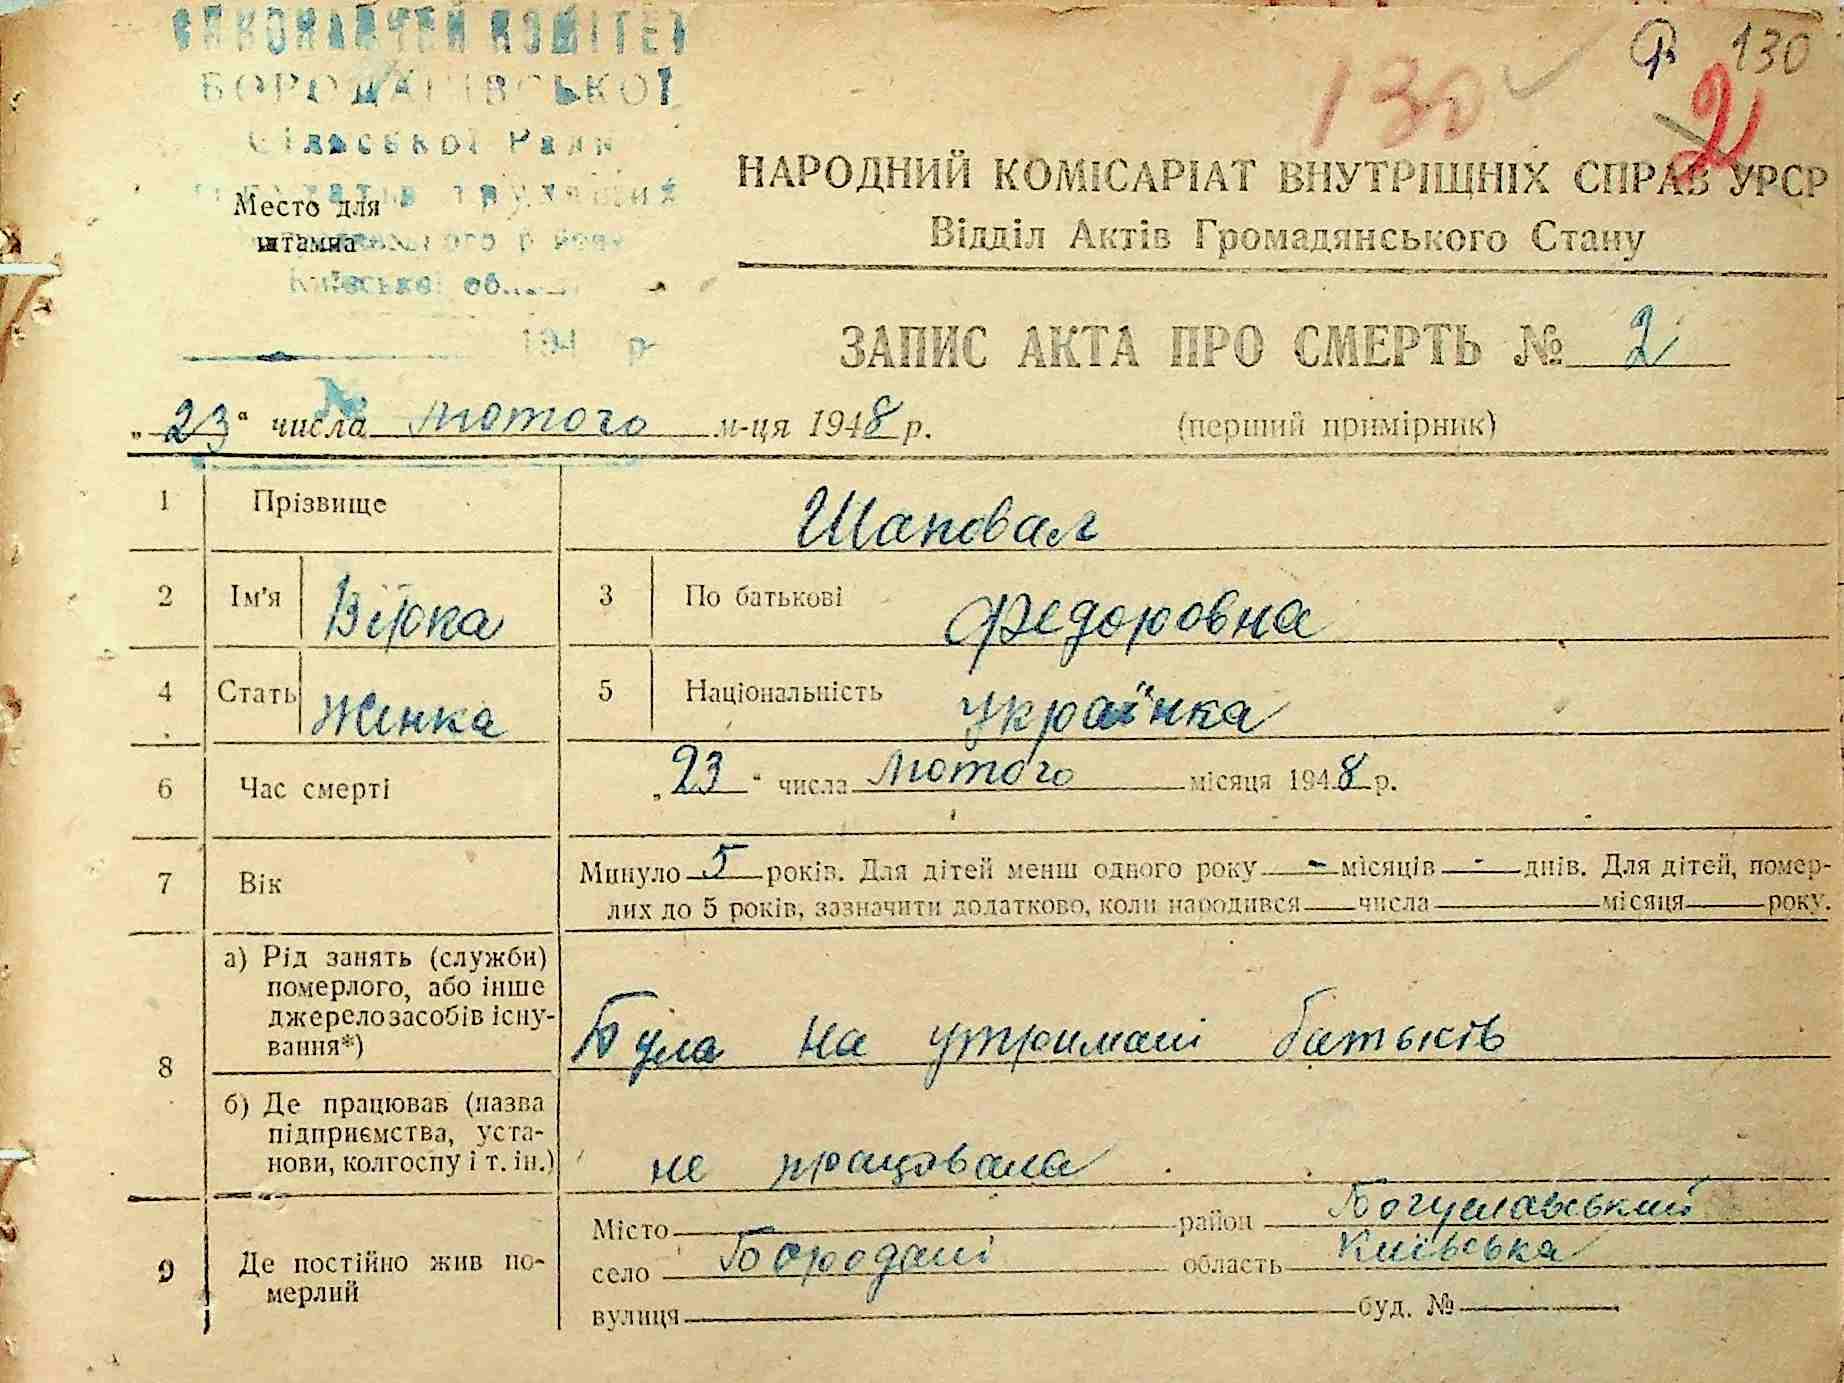 ВИКОНАВЧИЙ КОМІТЕТ
БОРОДАНІВСЬКОЇ
Сільської Ради
трудящих
Київської
194 р
№
Р 130
130
2
Место для
штампа
НАРОДНИЙ КОМІСАРІАТ ВНУТРІЩНІХ СПРАВ УРСР
Відділ Актів Громадянського Стану
ЗАПИС АКТА ПРО СМЕРТЬ № 2
„23“ числа лютого м-ця 1948 р. (перший примірник)
1 Прізвище Шаповал
2 Ім'я Вірка 3 По батькові Федоровна
4 Стать Жінка 5 Національність українка
6 Час смерті „23“ числа лютого місяця 1948 р.
7 Вік Минуло 5 років. Для дітей менш одного року - місяців - днів. Для дітей, помер-
лих до 5 років, зазначити додатково, коли народився числа місяця року.
8 а) Рід занять (служби)
померлого, або інше
джерело засобів існу-
вання*) Була на утримані батьків
б) Де працював (назва
підприємства, уста-
нови, колгоспу і т. ін.) не працювала
9 Де постійно жив по-
мерлий
Місто район Богуславський
село Бородані область Київська
вулиця буд. №